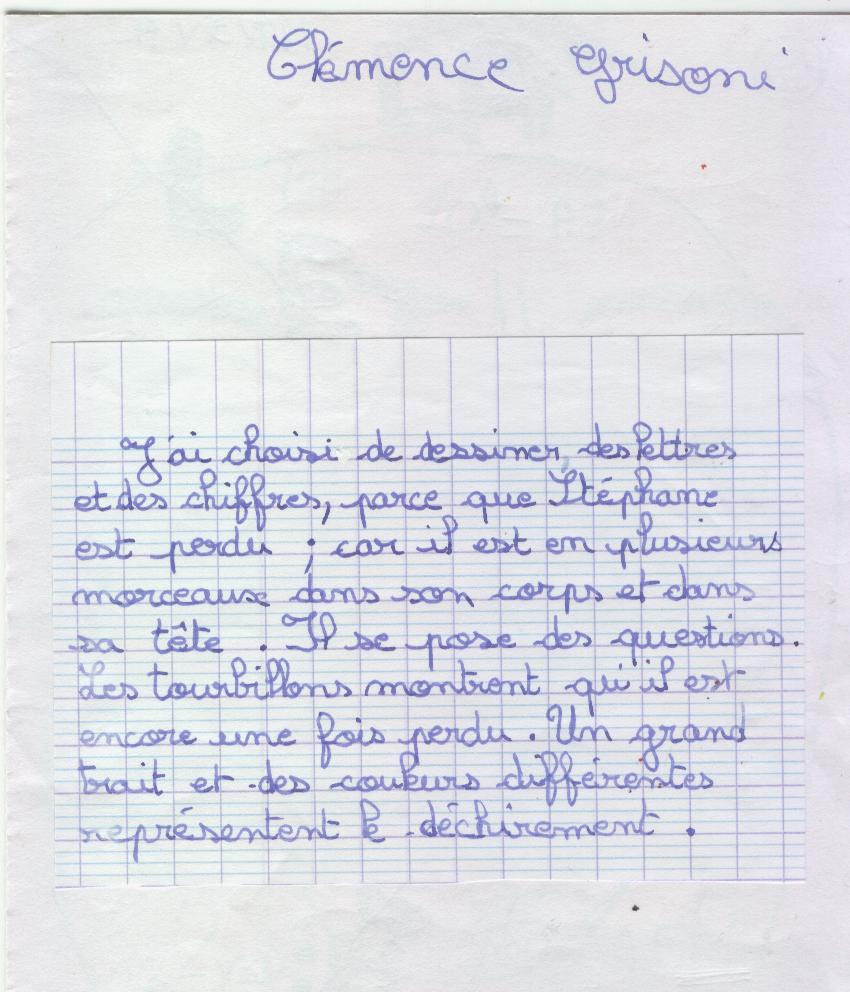 Clémence Grisoni
J'ai choisi de dessiner des lettres
et des chiffres, parce que Stéphane
est perdu ; car il est en plusieurs
morceaux dans son corps et dans
sa tête . Il se pose des questions.
Les tourbillons montrent qu'il est
encore une fois perdu . Un grand
trait et des couleurs différentes
représentent le déchirement .